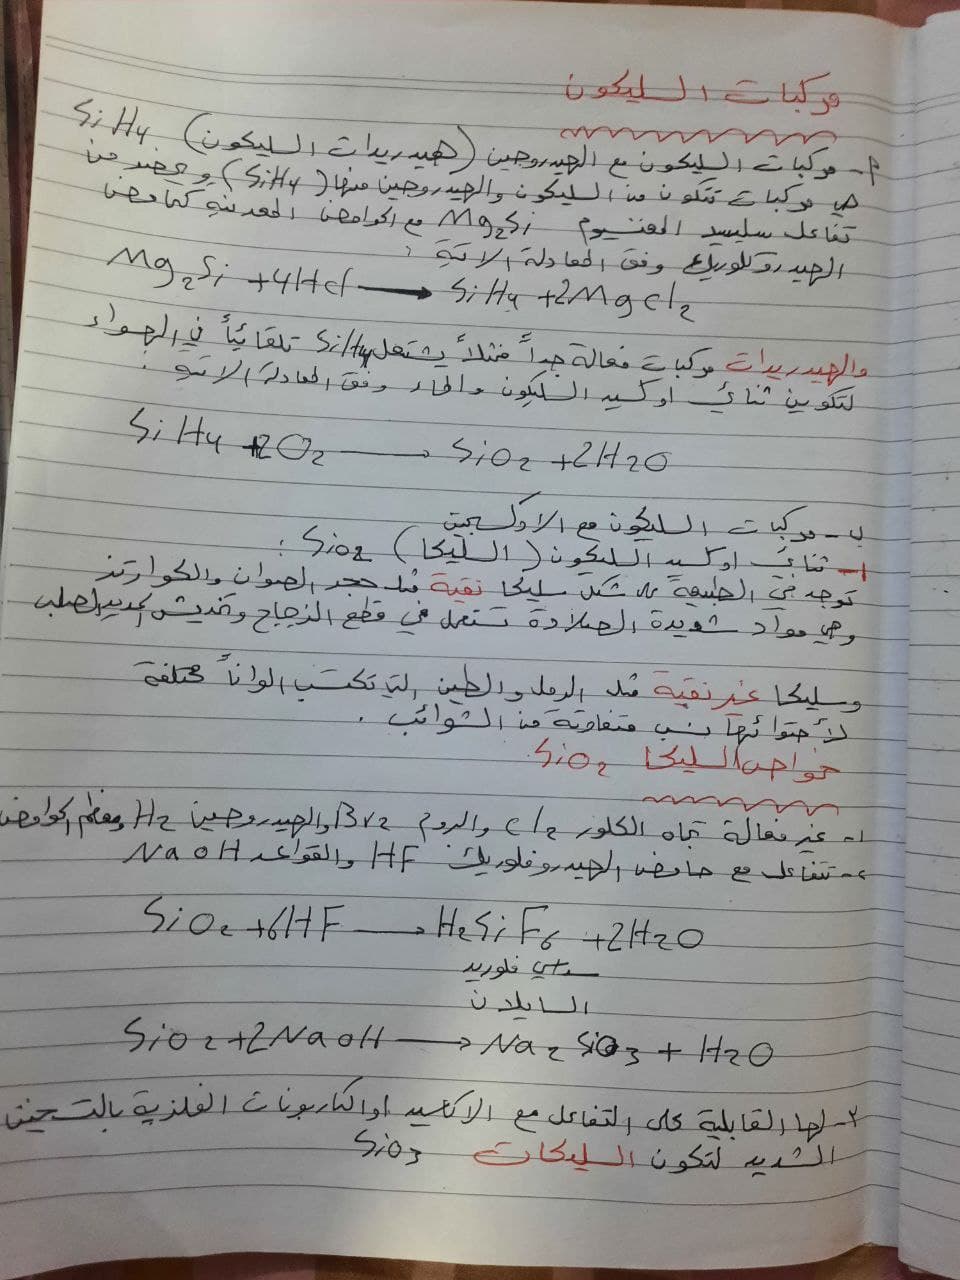 مركبات السليكون
أ- مركبات السليكون مع الهيدروجين (هيدريدات السليكون) SiH4
هي مركبات تتكون من السليكون والهيدروجين منها (SiH4) ويحضر من
تفاعل سليسيد المغنسيوم Mg2Si مع الحوامض المعدنية كحامض
الهيدروكلوريك وفق المعادلة الاتية :
Mg2Si + 4HCl → SiH4 + 2MgCl2
والهيدريدات مركبات فعالة جداً فمثلاً يشتعل SiH4 تلقائياً في الهواء
لتكوين ثنائي اوكسيد السليكون والماء وفق المعادلة الاتية :
SiH4 + 2O2 → SiO2 + 2H2O
ب- مركبات السليكون مع الاوكسجين
١- ثنائي اوكسيد السليكون (السليكا) SiO2 :
توجد في الطبيعة على شكل سليكا نقية مثل حجر الصوان والكوارتز
وهي مواد شديدة الصلادة تستعمل في قطع الزجاج وتخديش الحديد الصلب
وسليكا غير نقية مثل الرمل والطين التي تكتسب الواناً مختلفة
لأحتوائها نسب متفاوتة من الشوائب .
خواص السليكا SiO2
١- غير فعالة تجاه الكلور Cl2 والبروم Br2 والهيدروجين H2 ومعظم الحوامض
٢- تتفاعل مع حامض الهيدروفلوريك HF والقواعد NaOH
SiO2 + 6HF → H2SiF6 + 2H2O
سداسي فلوريد
السايلان
SiO2 + 2NaOH → Na2SiO3 + H2O
٣- لها القابلية على التفاعل مع الاكاسيد او الكاربونات الفلزية بالتسخين
الشديد لتكون السليكات SiO3